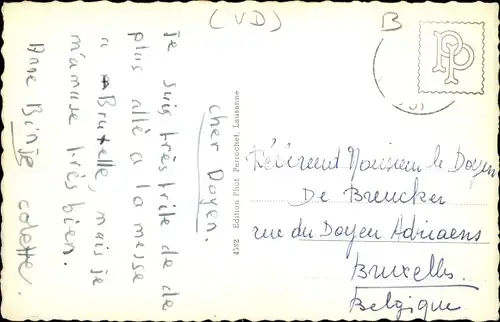 (VD)
B
PP
cher Doyen.
Je suis très trite de de
plus allè a la messe
a Bruxelle, mais je
m'amuse très bien.
Binje colette.
4592 Edition Phot Perrochet, Lausanne
Révérend Monsieur le Doyen
De Breucker
rue du Doyen Adriaens
Bruxelles.
Belgique